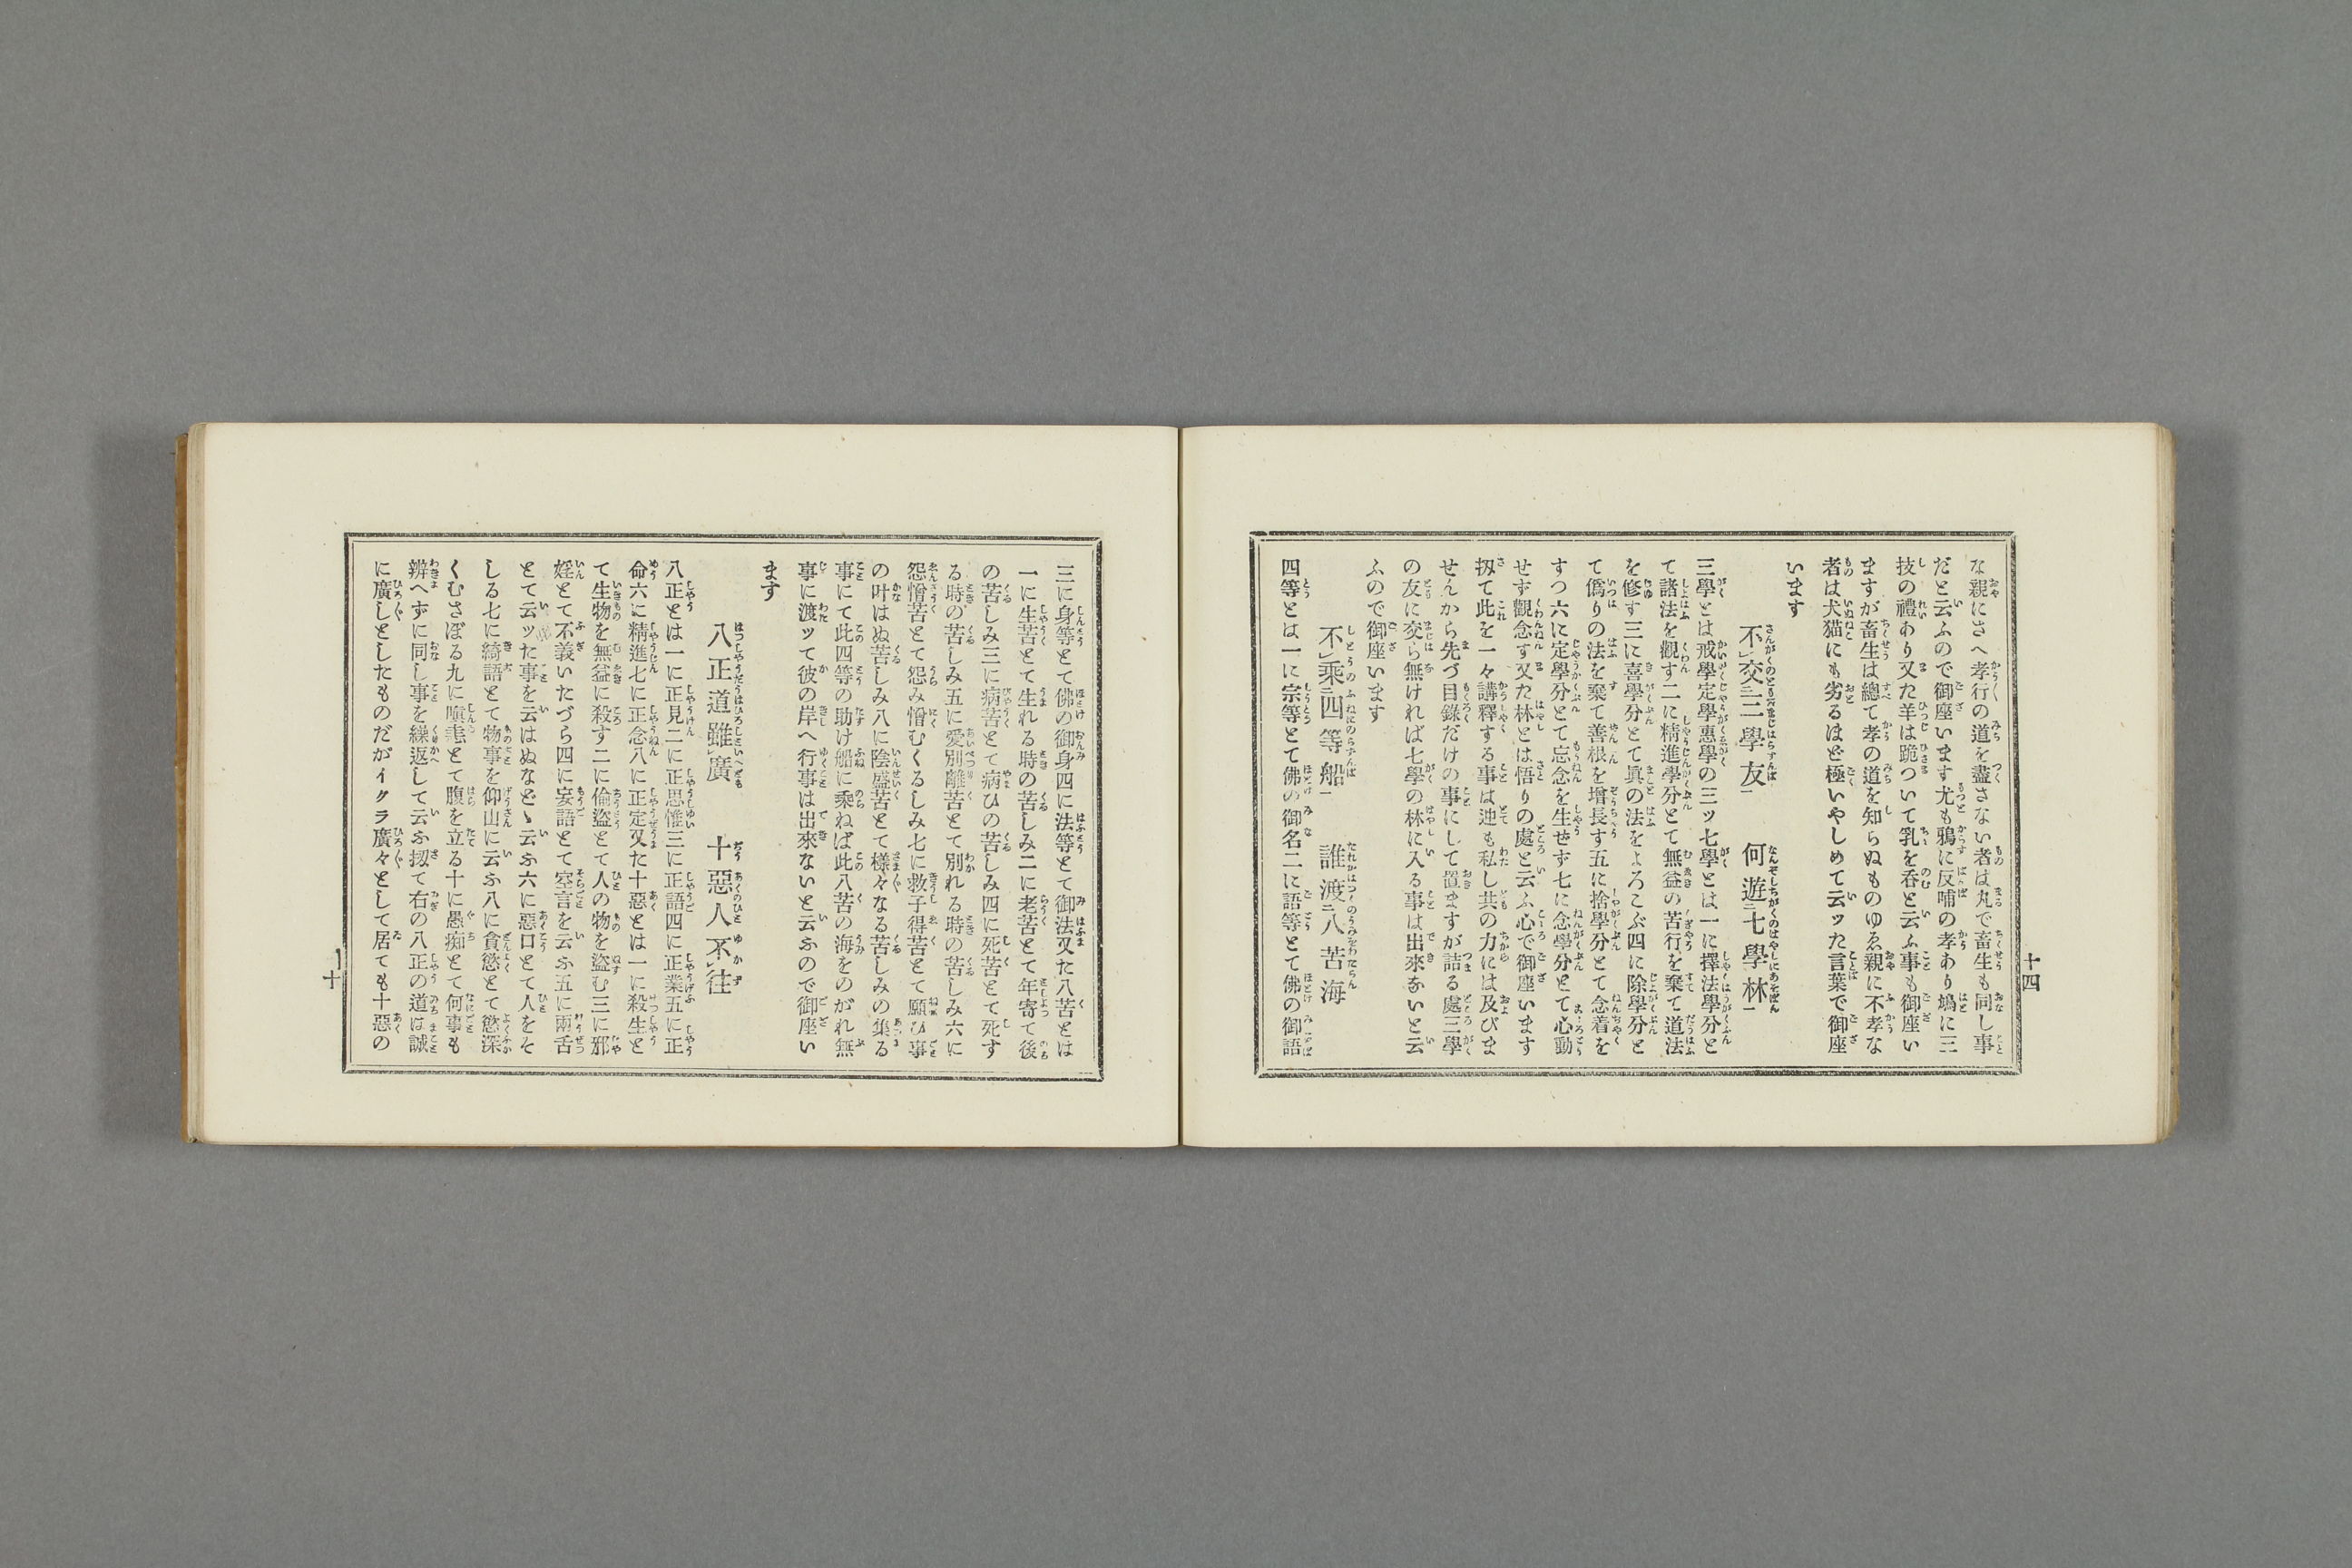 な親にさへ孝行の道を盡さない者は丸で畜生も同し事
だと云ふので御座います尤も鴉に反哺の孝あり鳩に三
技の禮あり又た羊は跪ついて乳を呑と云ふ事も御座い
ますが畜生は總て孝の道を知らぬものゆゑ親に不孝な
者は犬猫にも劣るほど極いやしめて云ッた言葉で御座
います
不交三學友 何遊七學林
三學とは戒學定學惠學の三ッ七學とは一に擇法學分と
て諸法を觀す二に精進學分とて無益の苦行を棄て道法
を修す三に喜學分とて眞の法をよろこぶ四に除學分と
て僞りの法を棄て善根を增長す五に捨學分とて念着を
すつ六に定學分とて忘念を生せず七に念學分とて心動
せず觀念す又た林とは悟りの處と云ふ心で御座います
扨て此を一々講釋する事は迚も私し共の力には及びま
せんから先づ目錄だけの事にして置ますが詰る處三學
の友に交ら無ければ七學の林に入る事は出來ないと云
ふので御座います
不乘四等船 誰渡八苦海
四等とは一に宗等とて佛の御名二に語等とて佛の御語
十四
三に身等とて佛の御身四に法等とて御法又た八苦とは
一に生苦とて生れる時の苦しみ二に老苦とて年寄て後
の苦しみ三に病苦とて病ひの苦しみ四に死苦とて死す
る時の苦しみ五に愛別離苦とて別れる時の苦しみ六に
怨憎苦とて怨み憎むくるしみ七に救子得苦とて願ひ事
の叶はぬ苦しみ八に陰盛苦とて樣々なる苦しみの集る
事にて此四等の助け船に乘ねば此八苦の海をのがれ無
事に渡ッて彼の岸へ行事は出來ないと云ふので御座い
ます
八正道雖廣 十惡人不往
八正とは一に正見二に正思惟三に正語四に正業五に正
命六に精進七に正念八に正定又た十惡とは一に殺生と
て生物を無益に殺す二に偷盜とて人の物を盜む三に邪
婬とて不義いたづら四に妄語とて空言を云ふ五に兩舌
とて云ッた事を云はぬなどゝ云ふ六に惡口とて人をそ
しる七に綺語とて物事を仰山に云ふ八に貪慾とて慾深
くむさぼる九に瞋恚とて腹を立る十に愚痴とて何事も
辨へずに同し事を繰返して云ふ扨て右の八正の道は誠
に廣しとしたものだがイクラ廣々として居ても十惡の